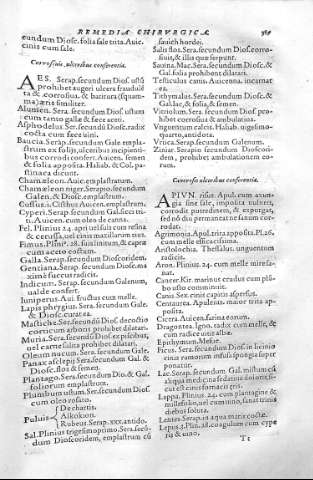 REMEDIA CHIRVRGICA. 389
eundum Diosc. folia sale trita. Auic.
cinis cum sale.
Corrosiuis, ulceribus conferentia.
AES. Serap. secundum Diosc. ustū
prohibet augeri ulcera fraudulē
ta & corrosiua, & batitura (squam-
ma) æris similiter.
Alumen. Sera. secundum Diosc. ustum
cum tanto gallæ & fece aceti.
Asphodelus Ser. secundū Diosc. radix
cocta cum fece uini.
Baucia. Serap. secundum Gale empla-
strum ex folijs, ulceribus recipienti-
bus corrodi confert. Auicen. semen
& folia apposita. Hahab. & Col. pa-
stinaca dicunt.
Chamæleon. Auic. emplastratum.
Chamæleon niger. Serapio. secundum
Galen. & Diosc. emplastrum.
Cossus. i. Cisthus Auicen. emplastrum.
Cyperi. Serap. secundum Gal. sicci tri-
ti. Auicen. cum oleo de canna.
Fel. Plinius 24. apri
Fimus. Plin. 28. fuminum, & capræ
cum aceto coctum.
Galla. Serap. secundum Dioscoridem.
Gentiana. Serap. secundum Diosc. ma
ximè succus radicis.
Indicum. Serap. secundum Galenum,
ualde confert.
Iuniperus. Aui. fructus cum melle.
Lapis phrygius. Sera. secundum Gale.
& Diosc. curat ea.
Mastiche. Ser. secundū Diosc. decoctio
corticum arboris prohibet dilatari.
Muria. Sera. secundū Diosc. ex piscibus,
uel carne salita prohibet dilatari.
Oleum nucum. Sera. secundum Gale.
Panax asclepij Sera. secundum Gal. &
Diosc. flos & semen.
Plantago. Sera. secundum Dio. & Gal.
foliorum emplastrum.
Plumbum ustum. Ser. secundum Diosc.
cum oleo rosato.
Puluis
De chartis.
Alkokion.
Rubeus Serap. xxx. antido.
Sal. Plinius trigesimoprimo. Sera. secū-
dum Dioscoridem, emplastrum cū
farich hordei.
Salis flos. Sera. secundum Diosc. corro-
siuis, & illis quæ serpunt.
Sauina. Mac. Sera. secundum Diosc. &
Gal. folia prohibent dilatari.
Testiculus canis. Auicenna. incarnat
ea.
Tithymalus. Sera. secundum Diosc. &
Gal. lac, & folia, & semen.
Vitriolum. Sera. secundum Diosc. pro-
hibet corrosiua & ambulatiua.
Vnguentum calcis. Hahab. uigesimo-
quarto, antidota.
Vrtica. Serap. secundum Galenum.
Ziniar. Serapio secundum Dioscori-
dem, prohibet ambulationem eo-
rum.
Cancroso ulceribus conferentia.
APIVN. risus. Apul. cum axun-
gia sine sale, imposita uulneri,
corrodit putredinem, & expurgat,
sed nō diu permaneat ne sanum cor-
rodat.
Agrimonia. Apul. trita apposita. Pl. 26.
cum melle efficacissima.
Aristolochia. Thessalus. unguentum
radicis.
Arnu. Plinius. 24. cum melle mirifa-
nat.
Cancer. Kir. marinus crudus cum plū-
bo usto comminuit.
Canis. Sex. cinis capitis aspersus.
Centaurea. Apuleius. maior trita ap-
posita.
Cicera. Auicen. farina eorum.
Dragontea. Igno. radix cum melle, &
cum radice uitis albæ.
Epithymum. Mesue.
Picus. Sera. secundum Diosc. in licinio
uiua ramorum infusi spongia super
ponatur.
Lac. Serap. secundum Gal.
Lappa. Plinius. 24. cum plantagine &
millefolio, uel cum uino, sanat trinis
diebus soluta.
Lentes Serap. in aqua maris coctæ.
Lepus. Plin. 28. coagulum cum cype
ro & uino.
Tt